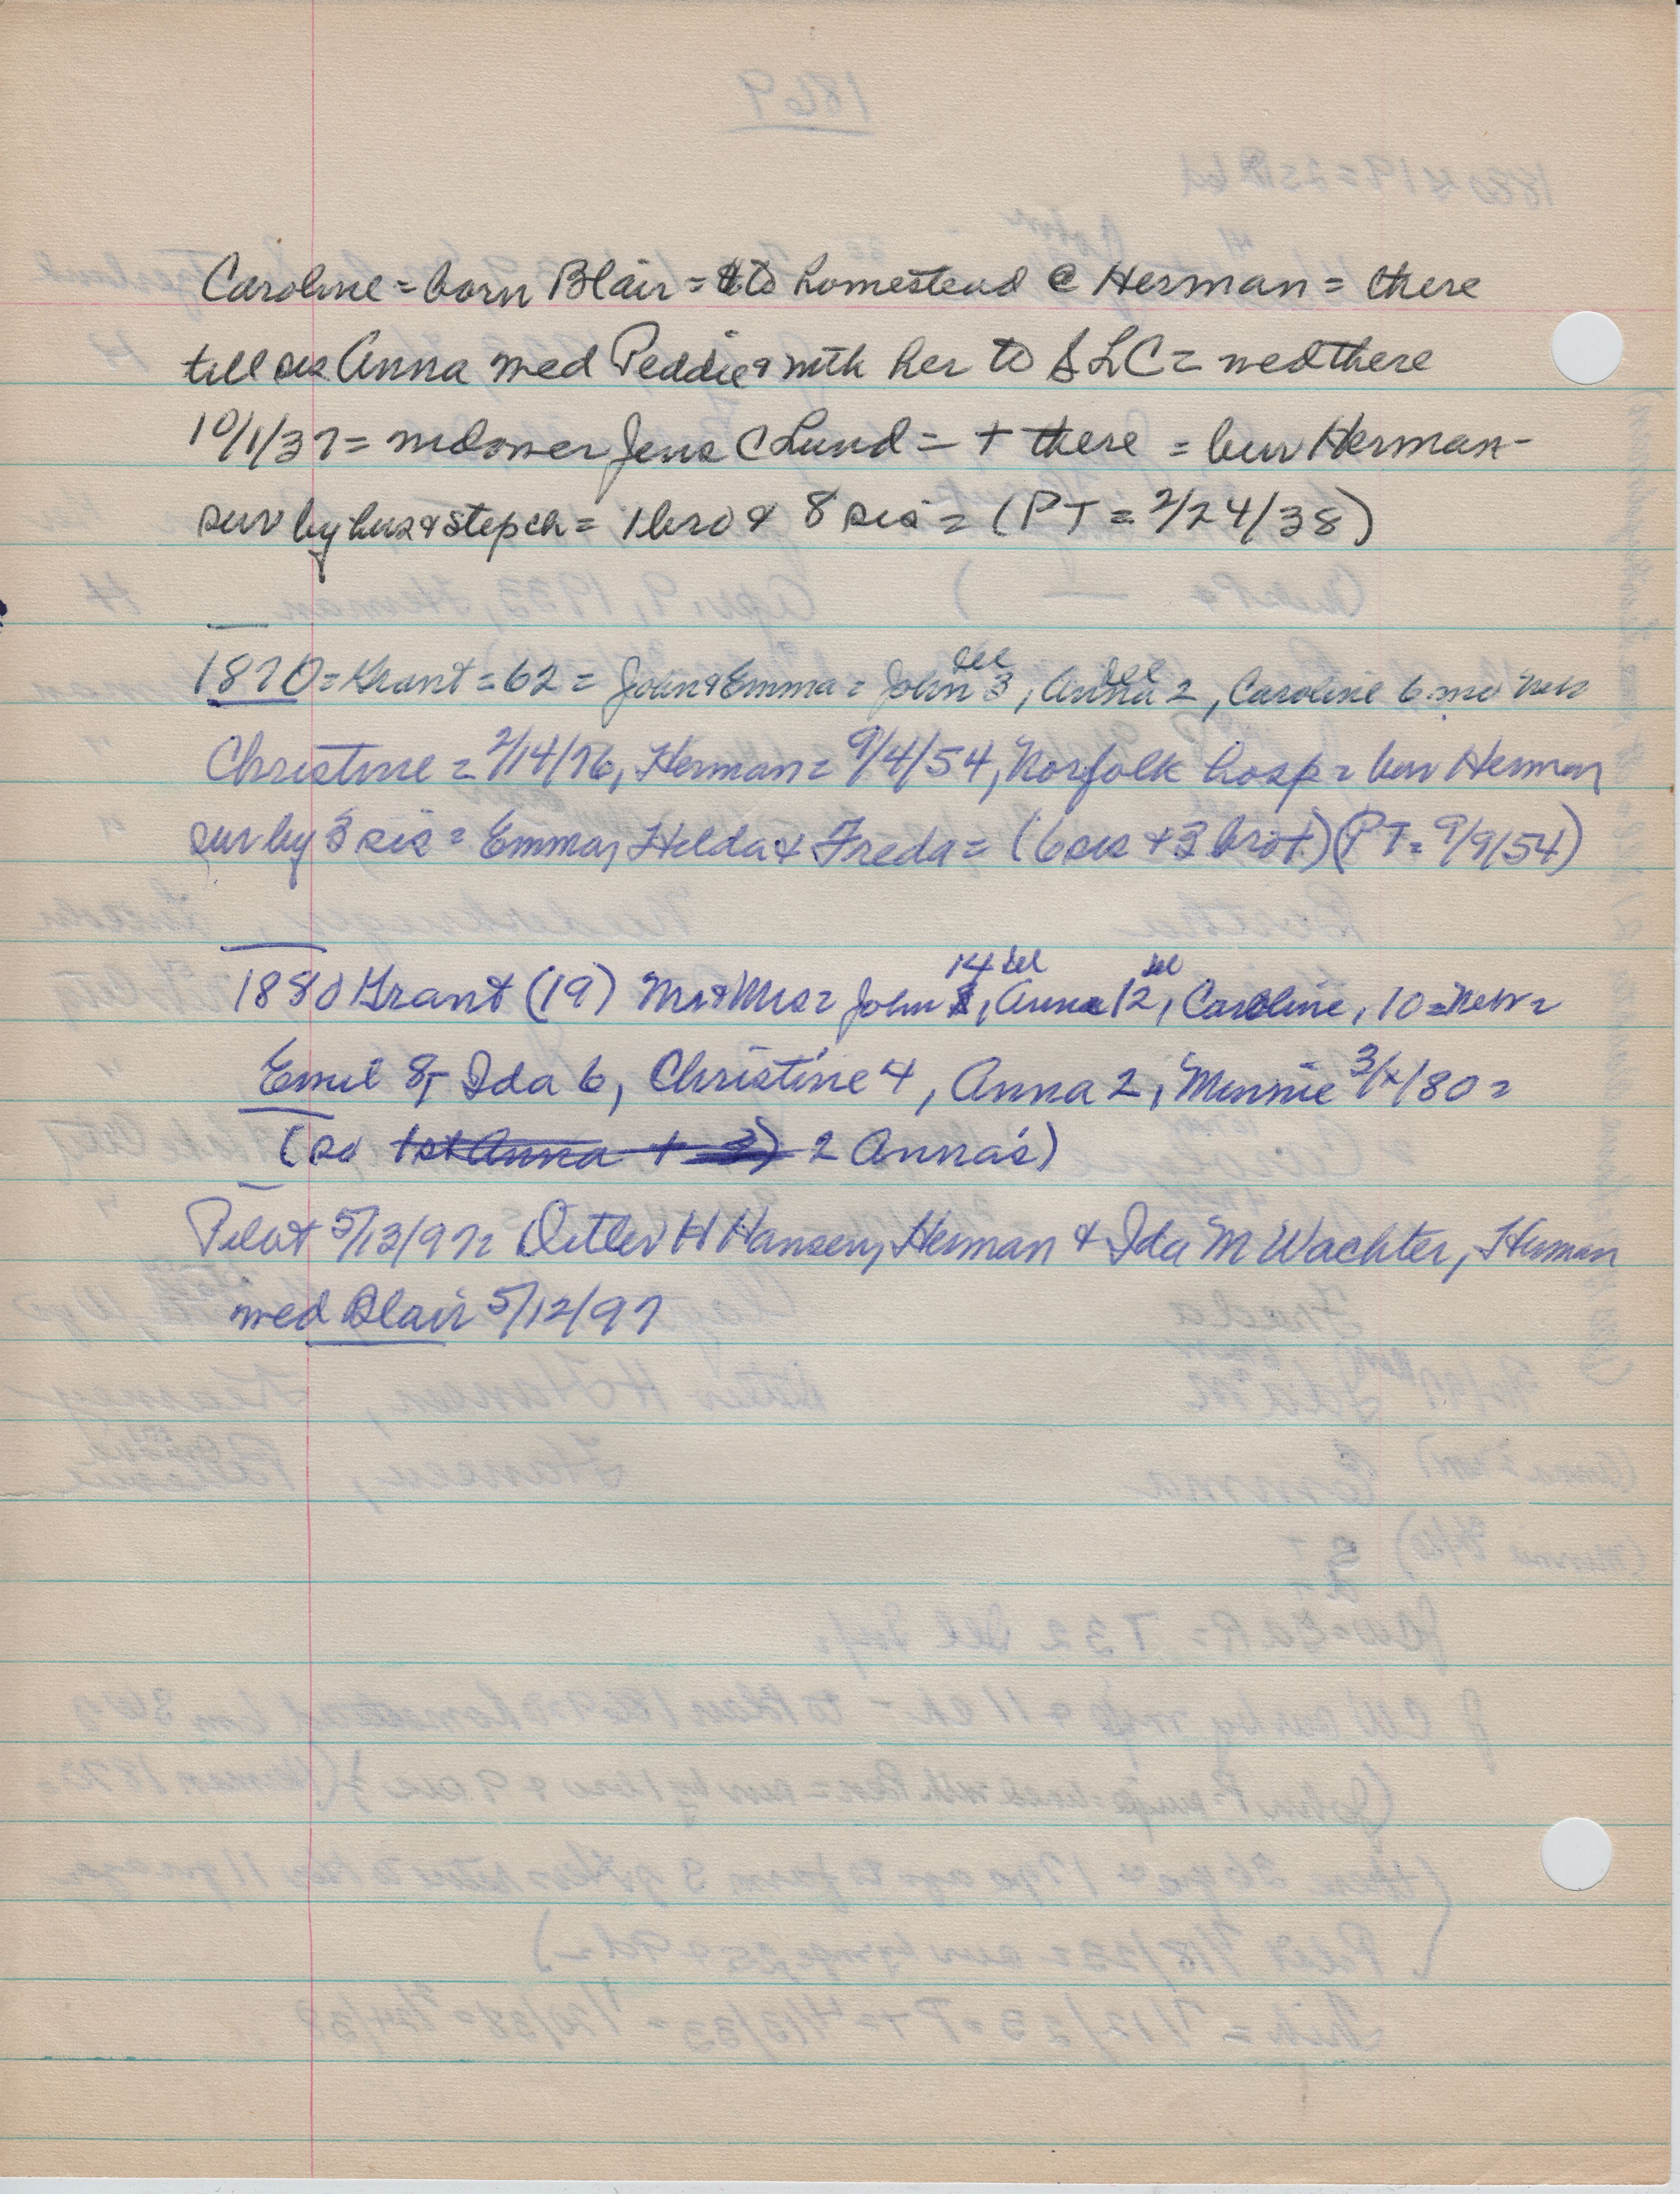 Caroline = born Blair = to homestead @ Herman = there
till sis Anna med Peddie & with her to SLC = med there
10/1/37 = widower Jens C Lund = + there = bur Herman -
surv by hus & step ch = 1 bro & 8 sis = (PT = 2/24/38)
1870 = Grant = 62 = John & Emma = John 3 Del, Anna 2 Del, Caroline 6 mo Neb
Christine = 2/14/76, Herman = 9/4/54, Norfolk hosp = bur Herman
surv by 3 sis = Emma, Hilda & Freda = (6 sis + 3 bro +) (PT = 9/9/54)
1880 Grant (19) Mr & Mrs = John 14 Del, Anna 12 Del, Caroline, 10 = Neb =
Emil 8, Ida 6, Christine 4, Anna 2, Minnie 3/x/80 =
(so 1st Anna + 2 Anna's)
Pilot 5/13/97 = Detlev H Hansen, Herman & Ida M Wachter, Herman
med Blair 5/12/97